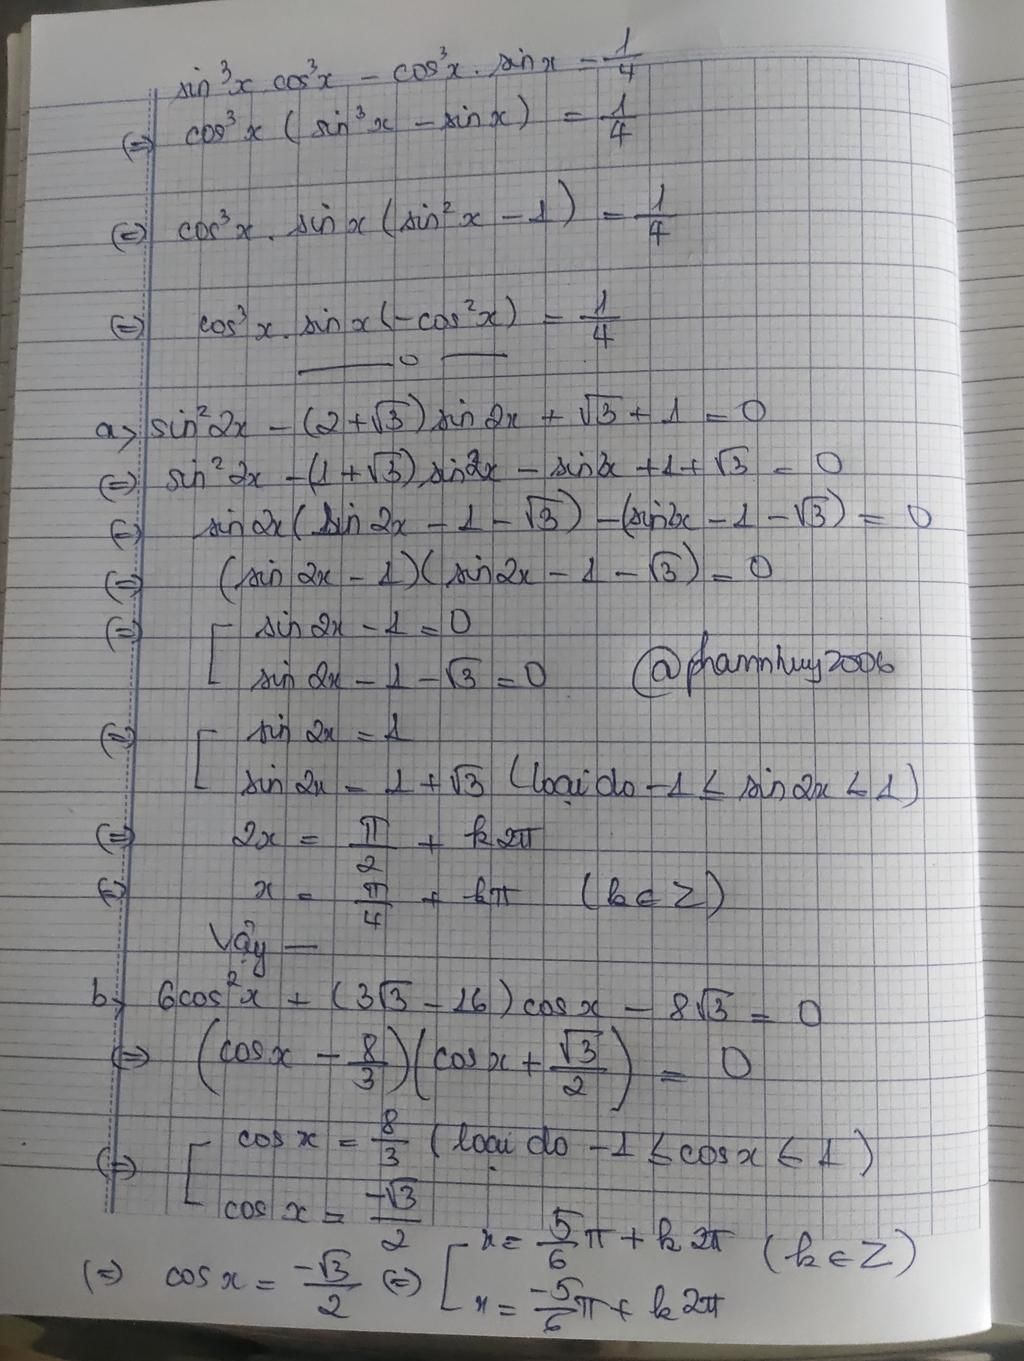 sin³x cos³x - cos³x . sinx = 1/4
(=) cos³x (sin³x - sinx) = 1/4
(=) cos³x . sinx (sin²x - 1) = 1/4
(=) cos³x . sinx (-cos²x) = 1/4
a> sin²2x - (2+√3) sin2x + √3 + 1 = 0
(=) sin²2x - (1+√3) sin2x - sin2x + 1 + √3 = 0
(=) sin2x (sin2x - 1 - √3) - (sin2x - 1 - √3) = 0
(=) (sin2x - 1)(sin2x - 1 - √3) = 0
(=) [ sin2x - 1 = 0
sin2x - 1 - √3 = 0 @phamnhuy2006
(=) [ sin2x = 1
sin2x = 1 + √3 (loại do -1 ≤ sin2x ≤ 1)
(=) 2x = π/2 + k2π
(=) x = π/4 + kπ (k ∈ Z)
Vậy —
b> 6cos²x + (3√3 - 16) cosx - 8√3 = 0
(=) (cosx - 8/3)(cosx + √3/2) = 0
(=) [ cosx = 8/3 (loại do -1 ≤ cosx ≤ 1)
cosx = -√3/2
(=) cosx = -√3/2 (=) [ x = 5/6 π + k2π (k ∈ Z)
x = -5/6 π + k2π